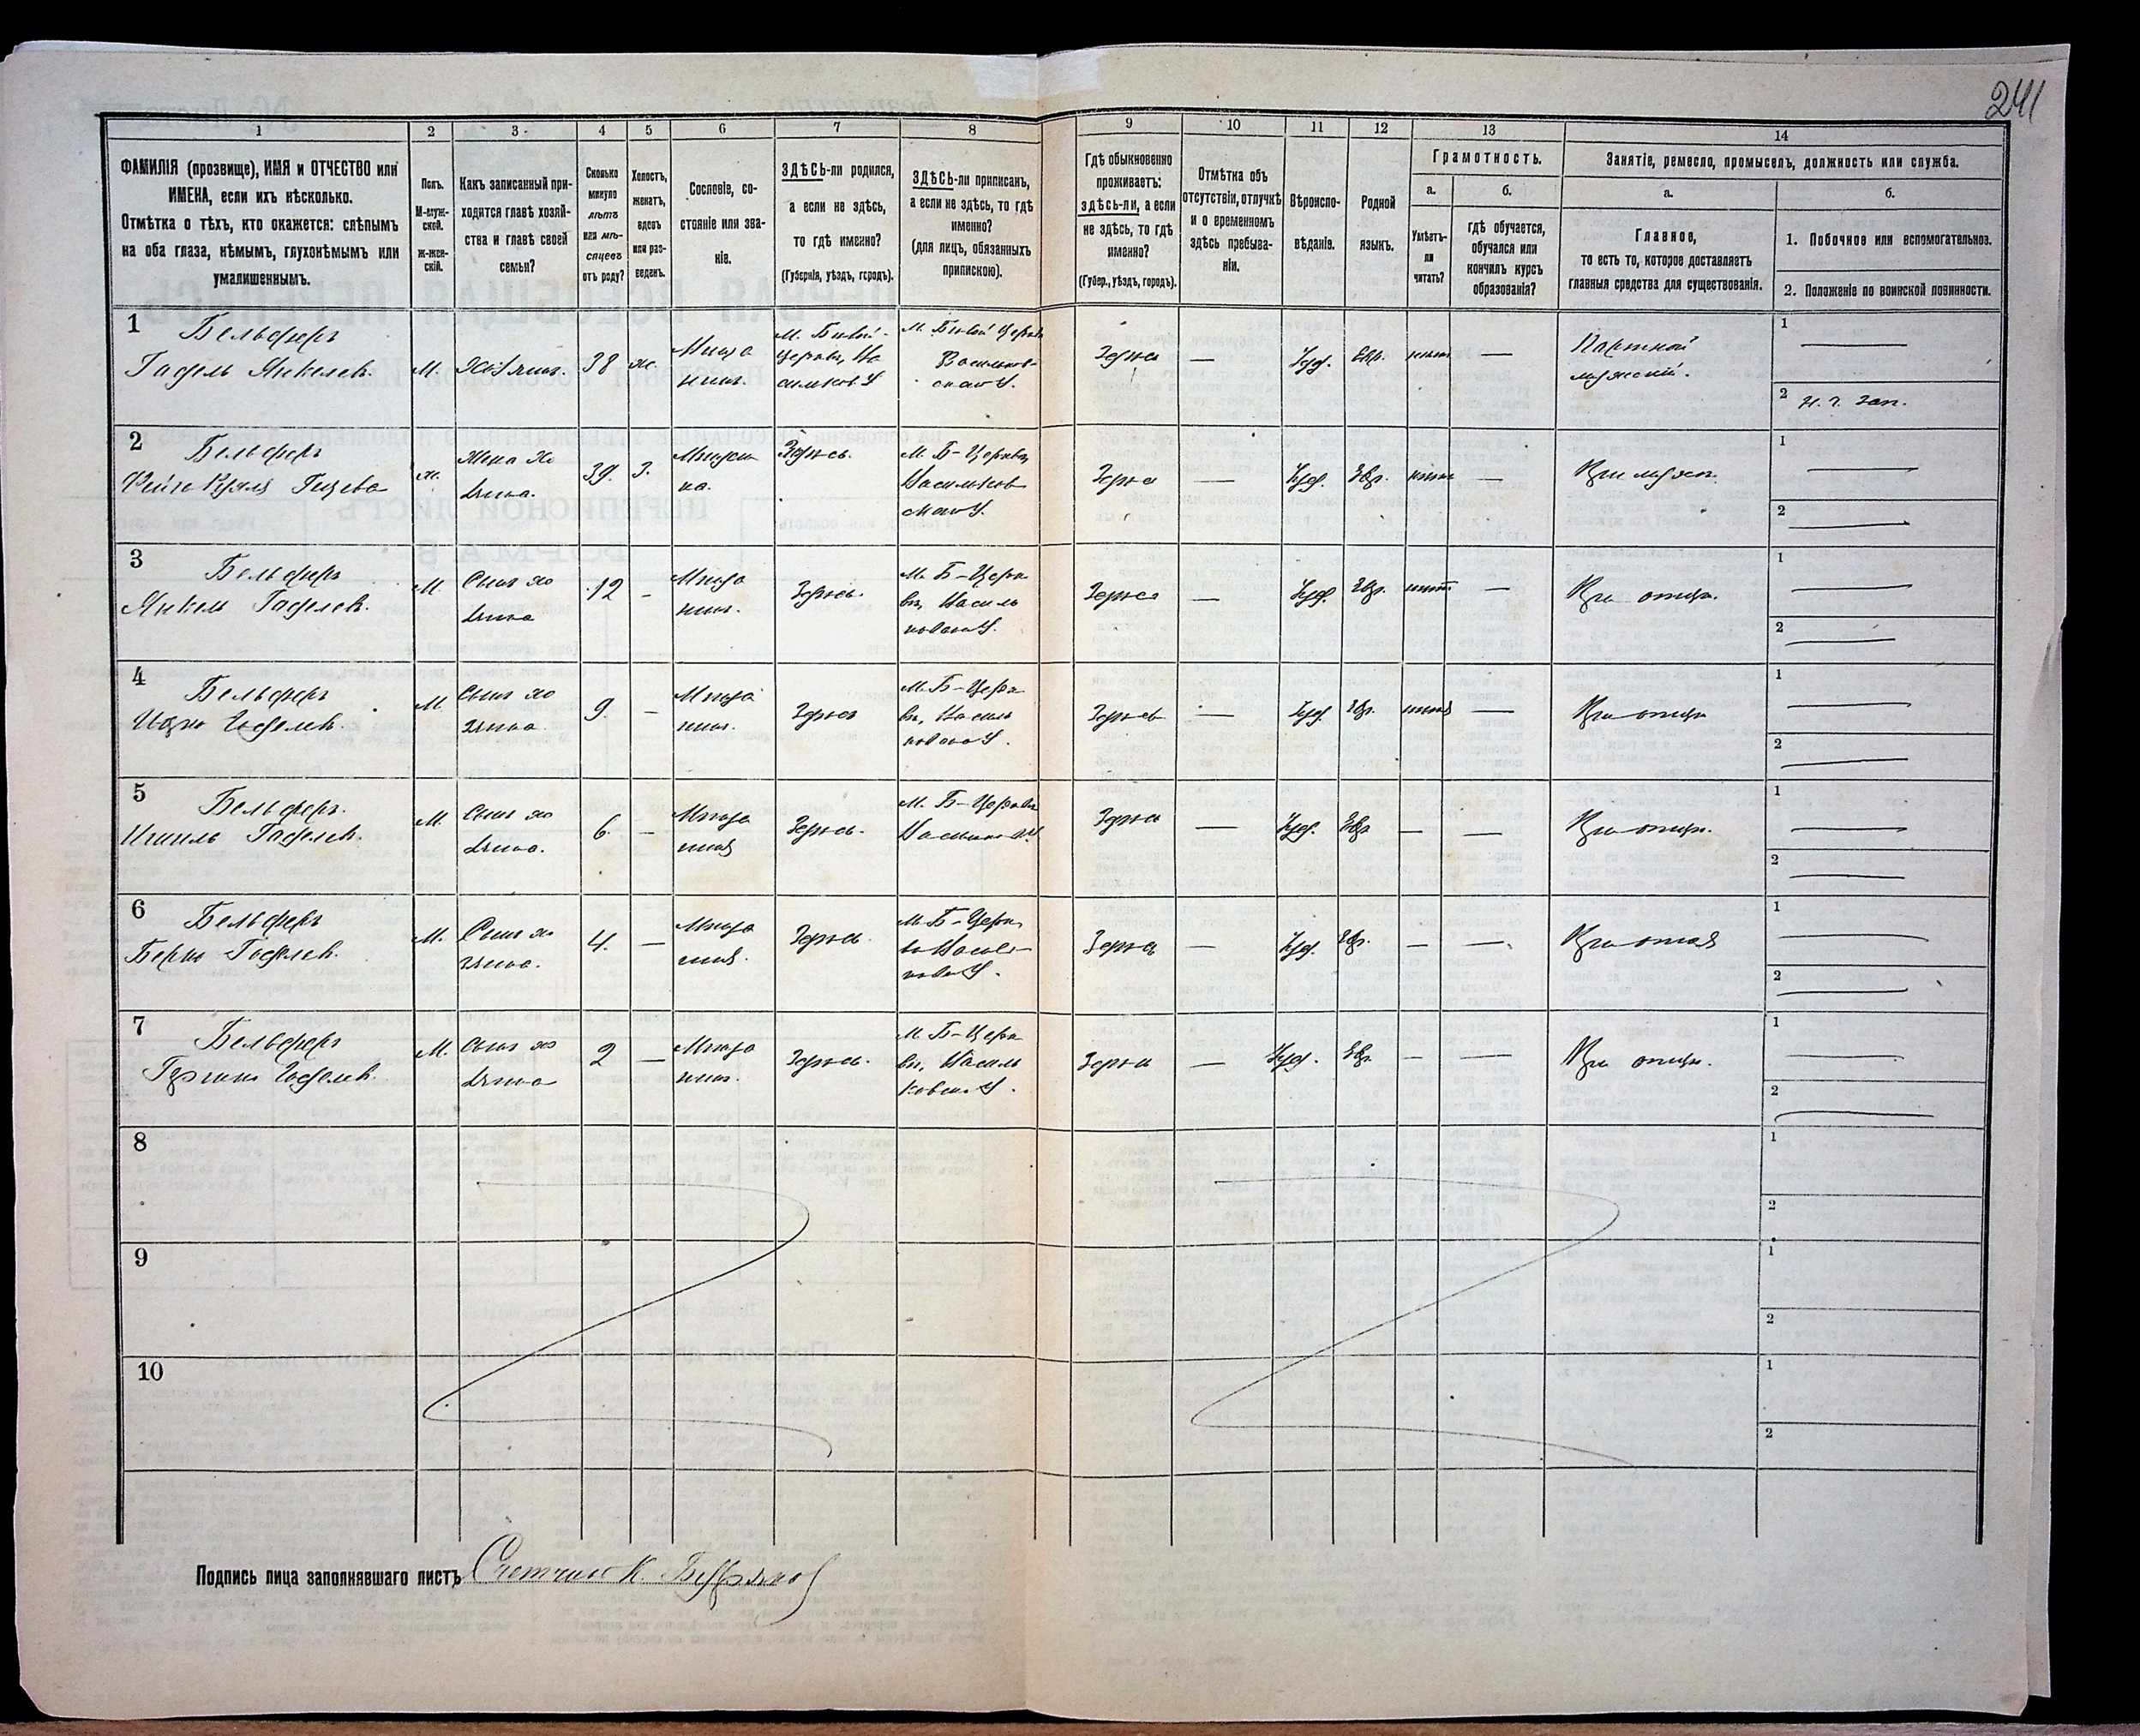 241
1 2 3 4 5 6 7 8 9 10 11 12 13 14
ФАМИЛІЯ (прозвище), ИМЯ и ОТЧЕСТВО или
ИМЕНА, если ихъ нѣсколько.
Отмѣтка о тѣхъ, кто окажется: слѣпымъ
на оба глаза, нѣмымъ, глухонѣмымъ или
умалишеннымъ.
Полъ.
М-муж-
ской.
Ж-жен-
скій.
Какъ записанный при-
ходится главѣ хозяй-
ства и главѣ своей
семьи?
Сколько
минуло
лѣтъ
или мѣ-
сяцевъ
отъ роду?
Холостъ,
женатъ,
вдовъ
или раз-
веденъ.
Сословіе, со-
стояніе или зва-
ніе.
ЗДѢСЬ-ли родился,
а если не здѣсь,
то гдѣ именно?
(Губернія, уѣздъ, городъ).
ЗДѢСЬ-ли приписанъ,
а если не здѣсь, то гдѣ
именно?
(для лицъ, обязанныхъ
припискою).
Гдѣ обыкновенно
проживаетъ:
здѣсь-ли, а если
не здѣсь, то гдѣ
именно?
(Губер., уѣздъ, городъ).
Отмѣтка объ
отсутствіи, отлучкѣ
и о временномъ
здѣсь пребыва-
ніи.
Вѣроиспо-
вѣданіе.
Родной
языкъ.
Грамотность.
а.
Умѣетъ-
ли
читать?
б.
гдѣ обучается,
обучался или
кончилъ курсъ
образованія?
Занятіе, ремесло, промыселъ, должность или служба.
а.
Главное,
то есть то, которое доставляетъ
главныя средства для существованія.
б.
1. Побочное или вспомогательное.
2. Положеніе по воинской повинности.
1
Бельферъ
Гафель Янкелев.
М.
Хозяинъ.
38
ж.
Мѣща
нинъ.
М. Бѣлой-
Церкви, Ва
сильков У
М. Бѣлой Церкви
Васильков-
скаго У.
Здѣсь
—
Іуд.
Евр.
—
Портной
мужской.
1
2 Н. ч. зап.
2
Бельферъ
ж.
Жена хо
зяина.
39.
З.
Мѣщан
ка.
Здѣсь.
М. Б-Церкви,
Васильков
скаго У.
Здѣсь
—
Іуд.
Евр.
—
При мужѣ
1
2
3
Бельферъ
Янкель Гафелев.
М.
Сынъ хо
зяина
12
-
Мѣща
нинъ.
Здѣсь.
М. Б-Церк
ви, Василь
ковскаго У.
Здѣсь
—
Іуд.
Евр.
—
При отцѣ.
1
2
4
Бельферъ
Ицко Гафелев.
М
Сынъ хо
зяина.
9.
-
Мѣща
нинъ.
Здѣсь
М. Б-Церк
ви, Василь
ковскаго У.
Здѣсь
—
Іуд.
Евр.
—
При отцѣ
1
2
5
Бельферъ.
Гафелев.
М.
Сынъ хо
зяина.
6.
-
Мѣща
нинъ
Здѣсь.
М. Б-Церкви
Здѣсь
—
Іуд.
Евр
—
—
При отцѣ.
1
2
6
Бельферъ
Берко Гафелев.
М.
Сынъ хо
зяина.
4.
—
Мѣща
нинъ.
Здѣсь.
М. Б-Церк
Здѣсь
—
Іуд.
Евр.
—
—
При отцѣ
1
2
7
Бельферъ
Гафелев.
М.
Сынъ хо
зяина
2
—
Мѣща
нинъ.
Здѣсь.
М. Б-Церк
ви, Василь
ковскаго У.
Здѣсь
—
Іуд.
Евр.
-
—
При отцѣ.
1
2
8
1
2
9
1
2
10
1
2
Подпись лица заполнявшаго листъ Счетчикъ К.